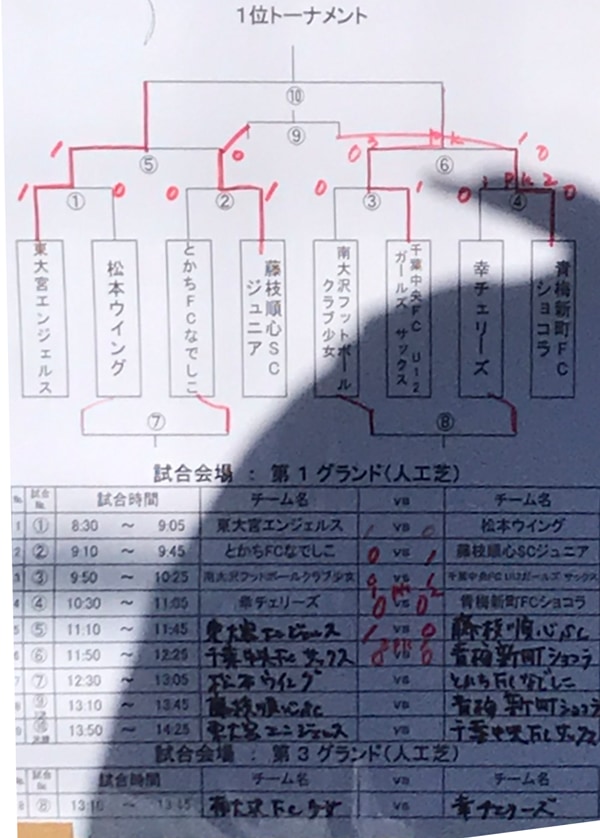 1位トーナメント
⑩
⑨
1 ⑤ 0 0 3 PK 1 ⑥ 0
1 ① 0 0 ② 1 0 ③ 1 0 PK 2 ④ 0
東大宮エンジェルス
松本ウイング
とかちFCなでしこ
藤枝順心SC
ジュニア
南大沢フットボール
クラブ少女
千葉中央FC U12
ガールズ サックス
幸チェリーズ
青梅新町FC
ショコラ
⑦ ⑧
試合会場 : 第1グランド(人工芝)
No. 試合No. 試合時間 チーム名 vs チーム名
1 ① 8:30 ~ 9:05 東大宮エンジェルス 1 0 松本ウイング
2 ② 9:10 ~ 9:45 とかちFCなでしこ 0 vs 1 藤枝順心SCジュニア
3 ③ 9:50 ~ 10:25 南大沢フットボールクラブ少女 vs 千葉中央FC U12ガールズ サックス
4 ④ 10:30 ~ 11:05 幸チェリーズ 0 vs 0 青梅新町FCショコラ
5 ⑤ 11:10 ~ 11:45 東大宮エンジェルス 1 vs 0 藤枝順心SC
6 ⑥ 11:50 ~ 12:25 千葉中央FCサックス vs 青梅新町ショコラ
7 ⑦ 12:30 ~ 13:05 松本ウイング vs とかちFCなでしこ
8 ⑨ 13:10 ~ 13:45 藤枝順心SC vs 青梅新町FCショコラ
9 ⑩ 決勝 13:50 ~ 14:25 東大宮エンジェルス vs 千葉中央FCサックス
試合会場 : 第3グランド(人工芝)
No. 試合No. 試合時間 チーム名 vs チーム名
⑧ 13:10 ~ 13:45 南大沢FC少女 vs 幸チェリーズ